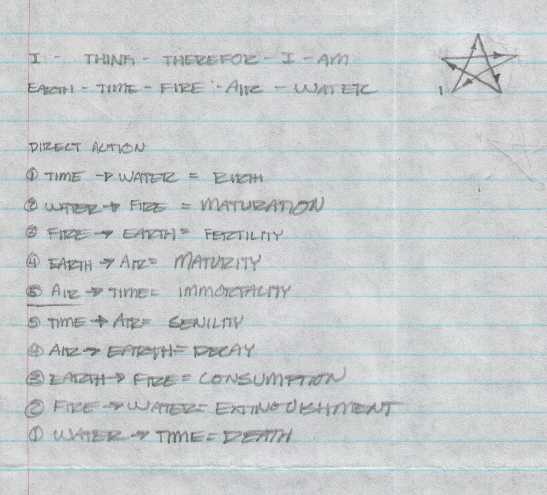 I - THINK - THEREFOR - I - AM
EARTH - TIME - FIRE - AIR - WATER
1
DIRECT ACTION
① TIME → WATER = BIRTH
② WATER → FIRE = MATURATION
③ FIRE → EARTH = FERTILITY
④ EARTH → AIR = MATURITY
⑤ AIR → TIME = IMMORTALITY
⑤ TIME → AIR = SENILITY
④ AIR → EARTH = DECAY
③ EARTH → FIRE = CONSUMPTION
② FIRE → WATER = EXTINGUISHMENT
① WATER → TIME = DEATH